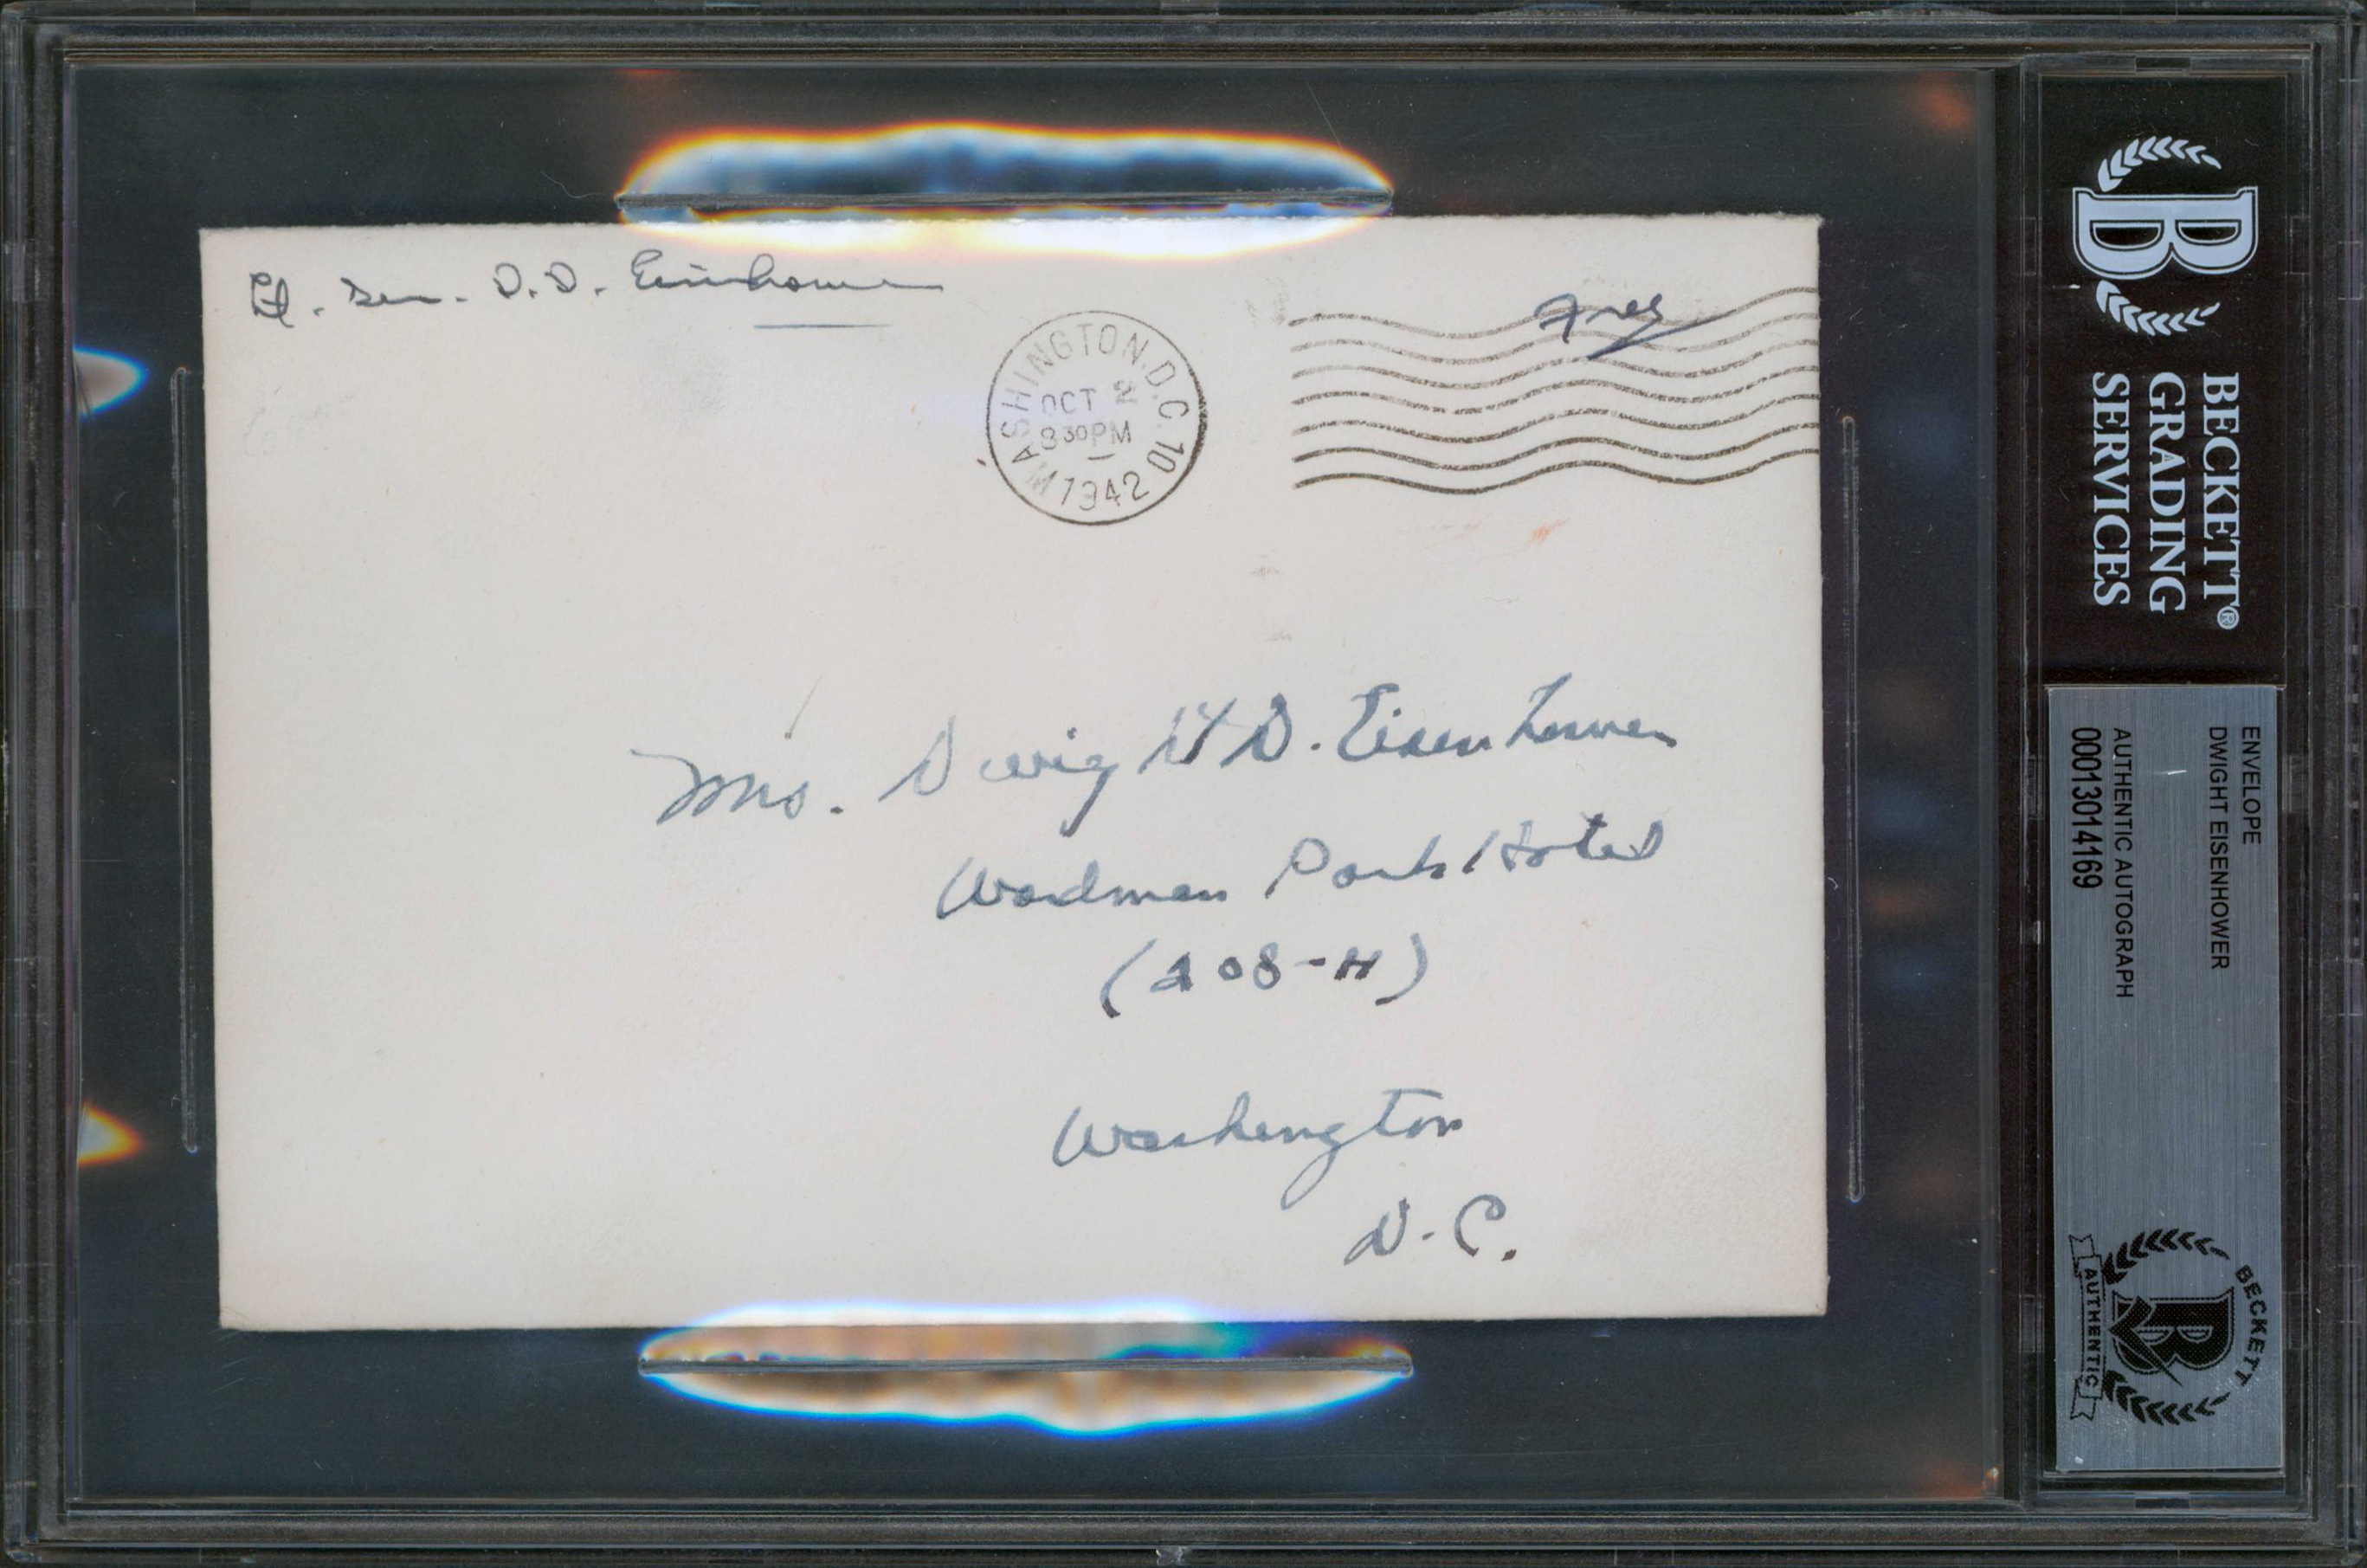 Lt. Gen. D.D. Eisenhower
Free
WASHINGTON, D.C. 10
OCT 2
8 30 PM
1942
Mrs. Dwight D. Eisenhower
Wardman Park Hotel
(208-H)
Washington
D.C.
B
BECKETT®
GRADING
SERVICES
ENVELOPE
DWIGHT EISENHOWER
AUTHENTIC AUTOGRAPH
00013014169
BECKETT
B
AUTHENTIC